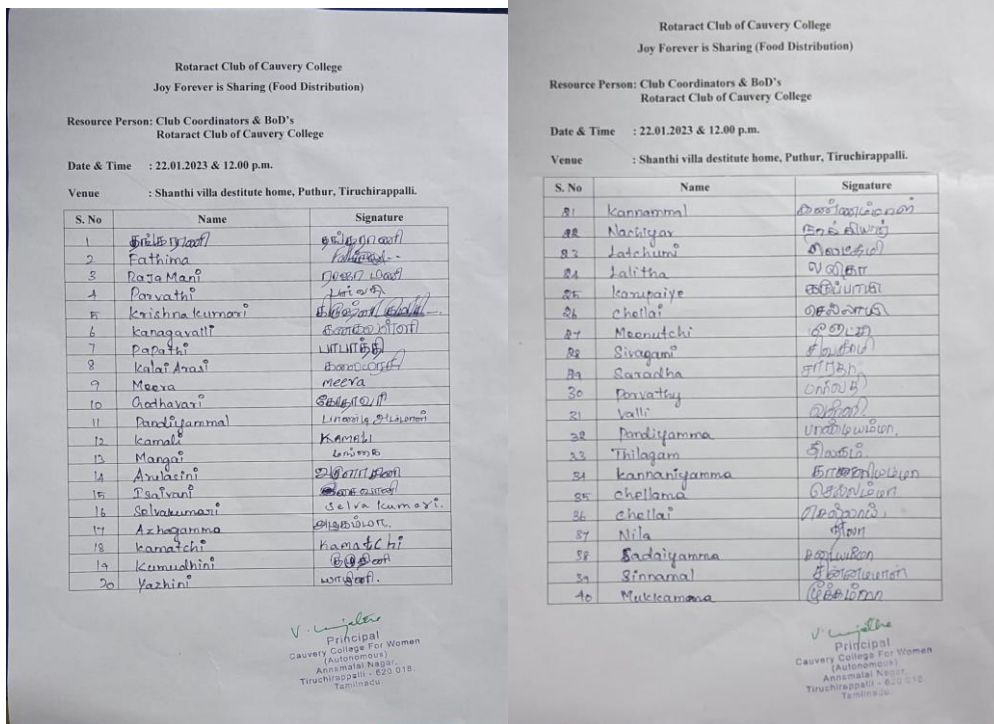 Rotaract Club of Cauvery College
Joy Forever is Sharing (Food Distribution)
Resource Person: Club Coordinators & BoD's
Rotaract Club of Cauvery College
Date & Time : 22.01.2023 & 12.00 p.m.
Venue : Shanthi villa destitute home, Puthur, Tiruchirappalli.
S. No Name Signature
1 தங்கராணி தங்கராணி
2 Fathima
3 Raja Mani ராஜா மணி
4 Parvathi பார்வதி
5 Krishna kumari
6 kanagavalli
7 Papathi பாபாத்தி
8 Kalai Arasi
9 Meera meera
10 Godhavari கோதாவரி
11 Pandiyammal
12 kamali KAMALI
13 Mangai
14 Arulasini
15 Isaivani இசைவாணி
16 Selvakumari Selva kumari.
17 Azhagamma அழகம்மா.
18 kamatchi KamatChi
19 kumudhini
20 Yazhini யாழினி.
Principal
Cauvery College For Women
(Autonomous)
Annamalai Nagar,
Tiruchirappalli - 620 018.
Tamilnadu.
Rotaract Club of Cauvery College
Joy Forever is Sharing (Food Distribution)
Resource Person: Club Coordinators & BoD's
Rotaract Club of Cauvery College
Date & Time : 22.01.2023 & 12.00 p.m.
Venue : Shanthi villa destitute home, Puthur, Tiruchirappalli.
S. No Name Signature
21 kannammal
22 Nachiyar
23 Latchumi
24 Lalitha லலிதா
25 karupaiye கருப்பாயி
26 chellai செல்லாயி
27 Meenutchi
28 Sivagami சிவகாமி
29 Saradha சாரதா
30 Parvathy பார்வதி
31 Valli வள்ளி
32 Pandiyamma பாண்டியம்மா.
33 Thilagam திலகம்.
34 kannaniyamma
35 chellama செல்லம்மா
36 chellai
37 Nila நிலா
38 Sadaiyamma
39 Sinnamal சின்னம்மாள்
40 Mukkamma
Principal
Cauvery College For Women
(Autonomous)
Annamalai Nagar,
Tiruchirappalli - 620 018.
Tamilnadu.